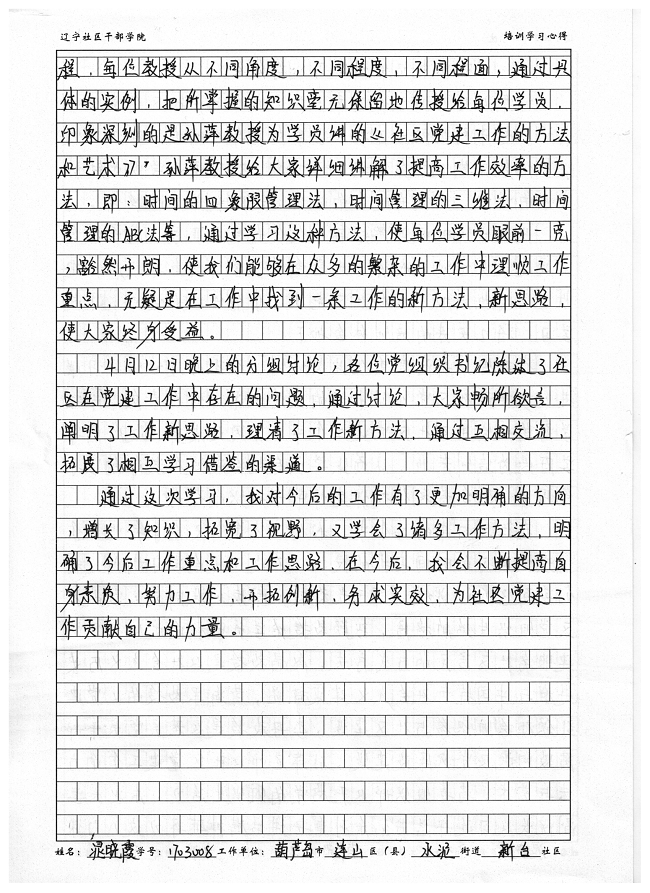 辽宁社区干部学院 培训学习心得
程，每位教授从不同角度，不同程度，不同程面，通过具
体的实例，把所掌握的知识毫无保留地传授给每位学员，
印象深刻的是孙萍教授为学员讲的《社区党建工作的方法
和艺术》，孙萍教授给大家详细讲解了提高工作效率的方
法，即：时间的四象限管理法，时间管理的三维法，时间
管理的ABC法等，通过学习这种方法，使每位学员眼前一亮
，豁然开朗，使我们能够在众多的繁杂的工作中理顺工作
重点，无疑是在工作中找到一条工作的新方法，新思路，
使大家终身受益。
4月12日晚上的分组讨论，各位党组织书记陈述了社
区在党建工作中存在的问题，通过讨论，大家畅所欲言，
阐明了工作新思路，理清了工作新方法，通过互相交流，
拓展了相互学习借鉴的渠道。
通过这次学习，我对今后的工作有了更加明确的方向
，增长了知识，拓宽了视野，又学会了诸多工作方法，明
确了今后工作重点和工作思路，在今后，我会不断提高自
身素质，努力工作，开拓创新，务求实效，为社区党建工
作贡献自己的力量。
姓名：梁晓霞 学号：1703008 工作单位：葫芦岛市 连山 区（县） 水泥 街道 新台 社区